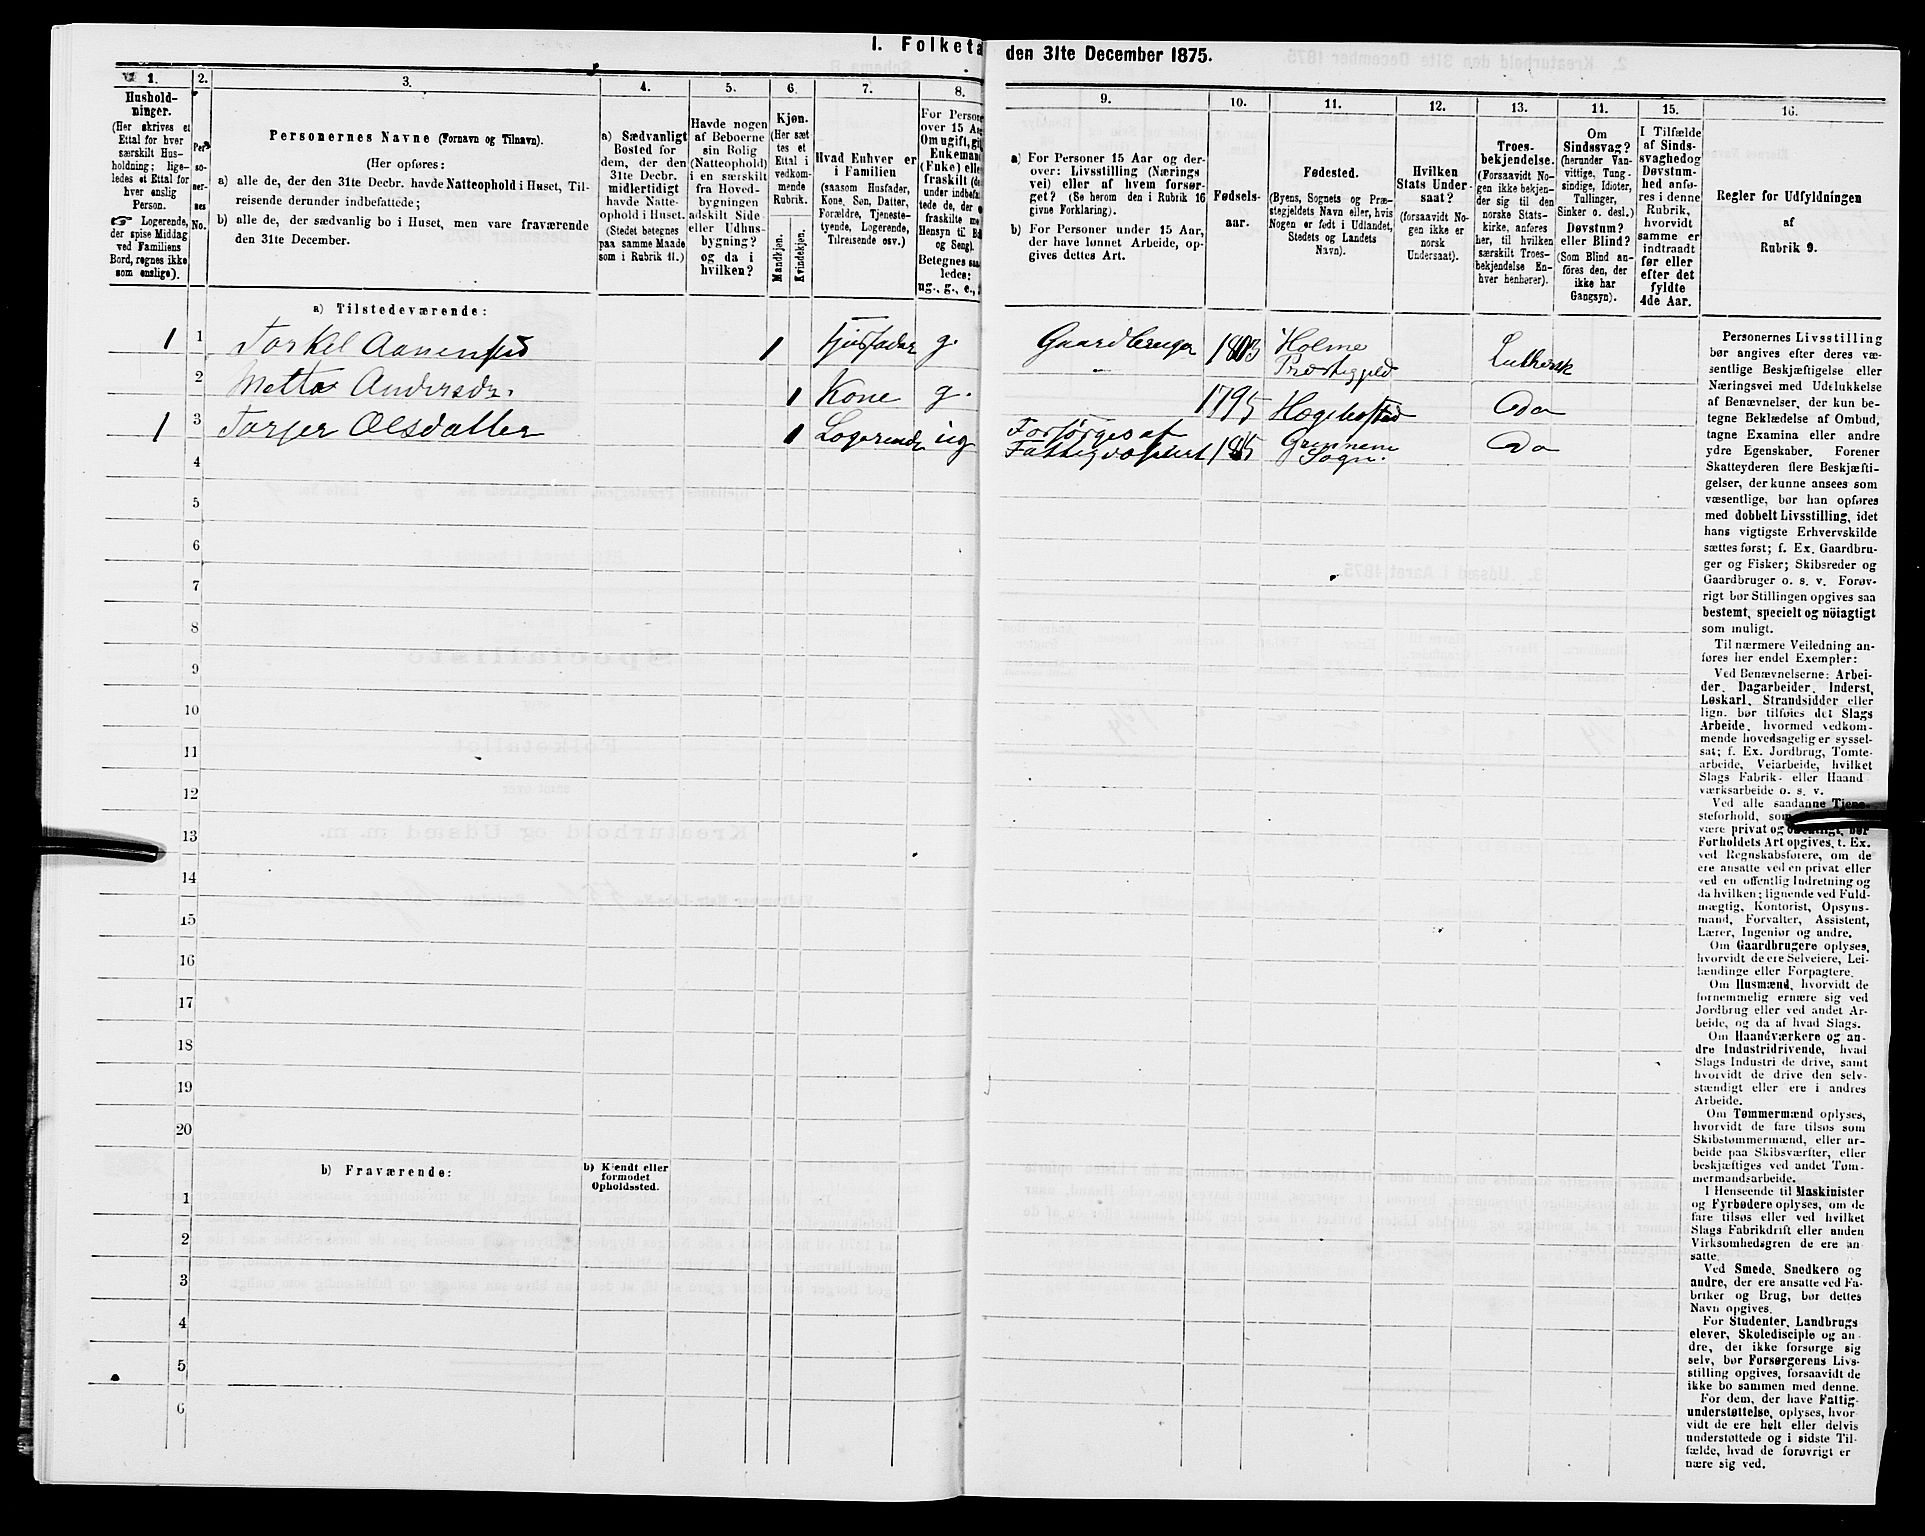 I. Folketa
den 31te December 1875.
1.
2.
3.
4.
5.
6.
7.
8.
9.
10.
11.
12.
13.
11.
15.
16.
Hushold-
ninger.
(Her skrives et
Ettal for hver
særskilt Hus-
holdning; lige-
ledes et Ettal for
hver enslig
Person.
Logerende,
der spise Middag
ved Familiens
Bord, regnes ikke
som enslige).
Per
so-
ner-
nes
No.
Personernes Navne (Fornavn og Tilnavn).
(Her opføres:
a) alle de, der den 31te Decbr. havde Natteophold i Huset, Til-
reisende derunder indbefattede;
b) alle de, der sædvanlig bo i Huset, men vare fraværende
den 31te December.
a) Sædvanligt
Bosted for
dem, der den
31te Decbr.
midlertidigt
havde Natte-
ophold i Huset.
(Stedet betegnes
paa samme Maade
som i Rubrik 11.)
Havde nogen
af Beboerne
sin Bolig
(Natteophold)
i en særskilt
fra Hoved-
bygningen
adskilt Side-
eller Udhus-
bygning?
og da i
hvilken?
Kjøn.
(Her sæt
tes et
Ettal i
vedkom-
mende
Rubrik.
Mandkjøn.
Kvindekjøn.
Hvad Enhver er
i Familien
(saasom Husfader,
Kone, Søn, Datter,
Forældre, Tjeneste-
tyende, Logerende,
Tilreisende osv.)
For Persone
over 15 Aa
Om ugift, gif
Enkeman
(Enke) elle
fraskilt (de
under indbefat
tede de, der e
fraskilte me
Hensyn til Bo
og Seng).
Betegnes saa
ledes:
ug., g., e.,
a) For Personer 15 Aar og der-
over: Livsstilling (Nærings
vei) eller af hvem forsør-
get? (Se herom den i Rubrik 16
givne Forklaring).
b) For Personer under 15 Aar,
der have lønnet Arbeide, op-
gives dettes Art.
Fødsels-
aar.
Fødested.
(Byens, Sognets og Præ-
stegjeldets Navn eller, hvis
Nogen er født i Udlandet,
Stedets og Landets
Navn).
Hvilken
Stats Under-
saat?
(forsaavidt No-
gen ikke er
norsk
Undersaat).
Troes-
bekjendelse.
(Forsaavidt No-
gen ikke bekjen-
der sig til den
norske Stats-
kirke, anføres
her, til hvilken
særskilt Troes-
bekjendelse En-
hver henhører).
Om
Sindssvag?
(herunder Van-
vittige, Tung-
sindige, Idioter,
Tullinger,
Sinker o. desl.)
Døvstum?
eller Blind?
(Som Blind an-
føres den, der
ikke har
Gangsyn).
I Tilfælde
af Sinds-
svaghedog
Døvstum-
hed anfø-
res i denne
Rubrik,
hvorvidt
samme er
indtraadt
før eller
efter det
fyldte
4de Aar.
Regler for Udfyldningen
af
Rubrik 9.
a) Tilstedeværende:
1 1 Torkel Aanensen 1 Husfader g. Gaardbruger 1803 Holme Præstegjeld Luthersk
2 Mette Andersdr. 1 Kone g. 1795 Hægebostad Do
1 3 Torjer Olsdatter 1 Logerende ug Forsørges af Fattigvæsenet 1815 Sogn. Do
4
5
6
7
8
9
10
11
12
13
14
15
16
17
18
19
20
b) Fraværende:
b) Kjendt eller
formodet
Opholdssted.
1
2
3
4
5
6
Personernes Livsstilling
bør angives efter deres væ-
sentlige Beskjæftigelse eller
Næringsvei med Udelukkelse
af Benævnelser, der kun be-
tegne Beklædelse af Ombud,
tagne Examina eller andre
ydre Egenskaber. Forener
Skatteyderen flere Beskjæfti-
gelser, der kunne ansees som
væsentlige, bør han opføres
med dobbelt Livsstilling, idet
hans vigtigste Erhvervskilde
sættes først; f. Ex. Gaardbru-
ger og Fisker; Skibsreder og
Gaardbruger o. s. v. Forøv-
rigt bør Stillingen opgives saa
bestemt, specielt og nöiagtigt
som muligt.
Til nærmere Veiledning an-
føres her endel Exempler:
Ved Benævnelserne: Arbei-
der, Dagarbeider, Inderst,
Løskarl, Strandsidder eller
lign. bør tilføies det Slags
Arbeide, hvormed vedkom-
mende hovedsagelig er syssel-
sat; f. Ex. Jordbrug, Tomte-
arbeide, Veiarbeide, hvilket
Slags Fabrik- eller Haand
værksarbeide o. s. v.
Ved alle saadanne Tjene-
steforhold, som
være privat og offentligt, bør
Forholdets Art opgives, t. Ex.
ved Regnskabsførere, om de
ere ansatte ved en privat eller
ved en offentlig Indretning og
da hvilken; lignende ved Fuld-
mægtig, Kontorist, Opsyns-
mand, Forvalter, Assistent,
Lærer, Ingeniør og andre.
Om Gaardbrugere oplyses,
hvorvidt de ere Selveiere, Lei-
lændinge eller Forpagtere.
Om Husmænd, hvorvidt de
fornemmelig ernære sig ved
Jordbrug eller ved andet Ar-
beide, og da af hvad Slags.
Om Haandværkere og an-
dre Industridrivende, hvad
Slags Industri de drive, samt
hvorvidt de drive den selv-
stændigt eller ere i andres
Arbeide.
Om Tømmermænd oplyses,
hvorvidt de fare tilsøs som
Skibstømmermænd, eller ar-
beide paa Skibsværfter, eller
beskjæftiges ved andet Tøm-
mermandsarbeide.
I Henseende til Maskinister
og Fyrbødere oplyses, om de
fare tilsøs eller ved hvilket
Slags Fabrikdrift eller anden
Virksomhedsgren de ere an-
satte.
Ved Smede, Snedkere og
andre, der ere ansatte ved Fa-
briker og Brug, bør dettes
Navn opgives.
For Studenter, Landbrugs
elever, Skoledisciple og an-
dre, der ikke forsørge sig
selv, bør Forsørgerens Livs-
stilling opgives, forsaavidt de
ikke bo sammen med denne.
For dem, der have Fattig-
understøttelse, oplyses, hvor-
vidt de ere helt eller delvis
understøttede og i sidste Til-
fælde, hvad de forøvrigt er
nære sig ved.